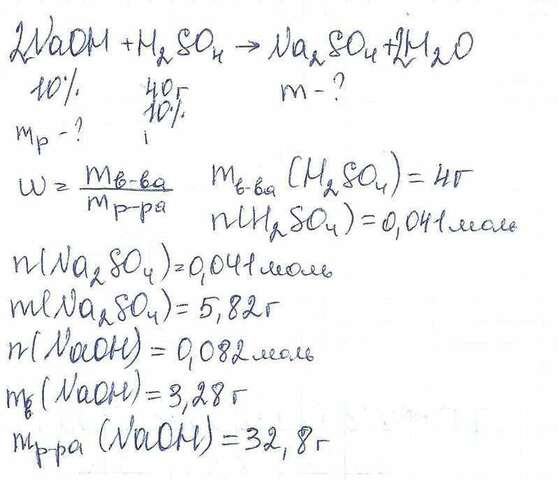 2NaOH + H₂SO₄ → Na₂SO₄ + 2H₂O
10% 40г m - ?
10%
mр - ?
w = mв-ва / mр-ра mв-ва (H₂SO₄) = 4г
n(H₂SO₄) = 0,041 моль
n(Na₂SO₄) = 0,041 моль
m(Na₂SO₄) = 5,82 г
n(NaOH) = 0,082 моль
mв (NaOH) = 3,28 г
mр-ра (NaOH) = 32,8 г